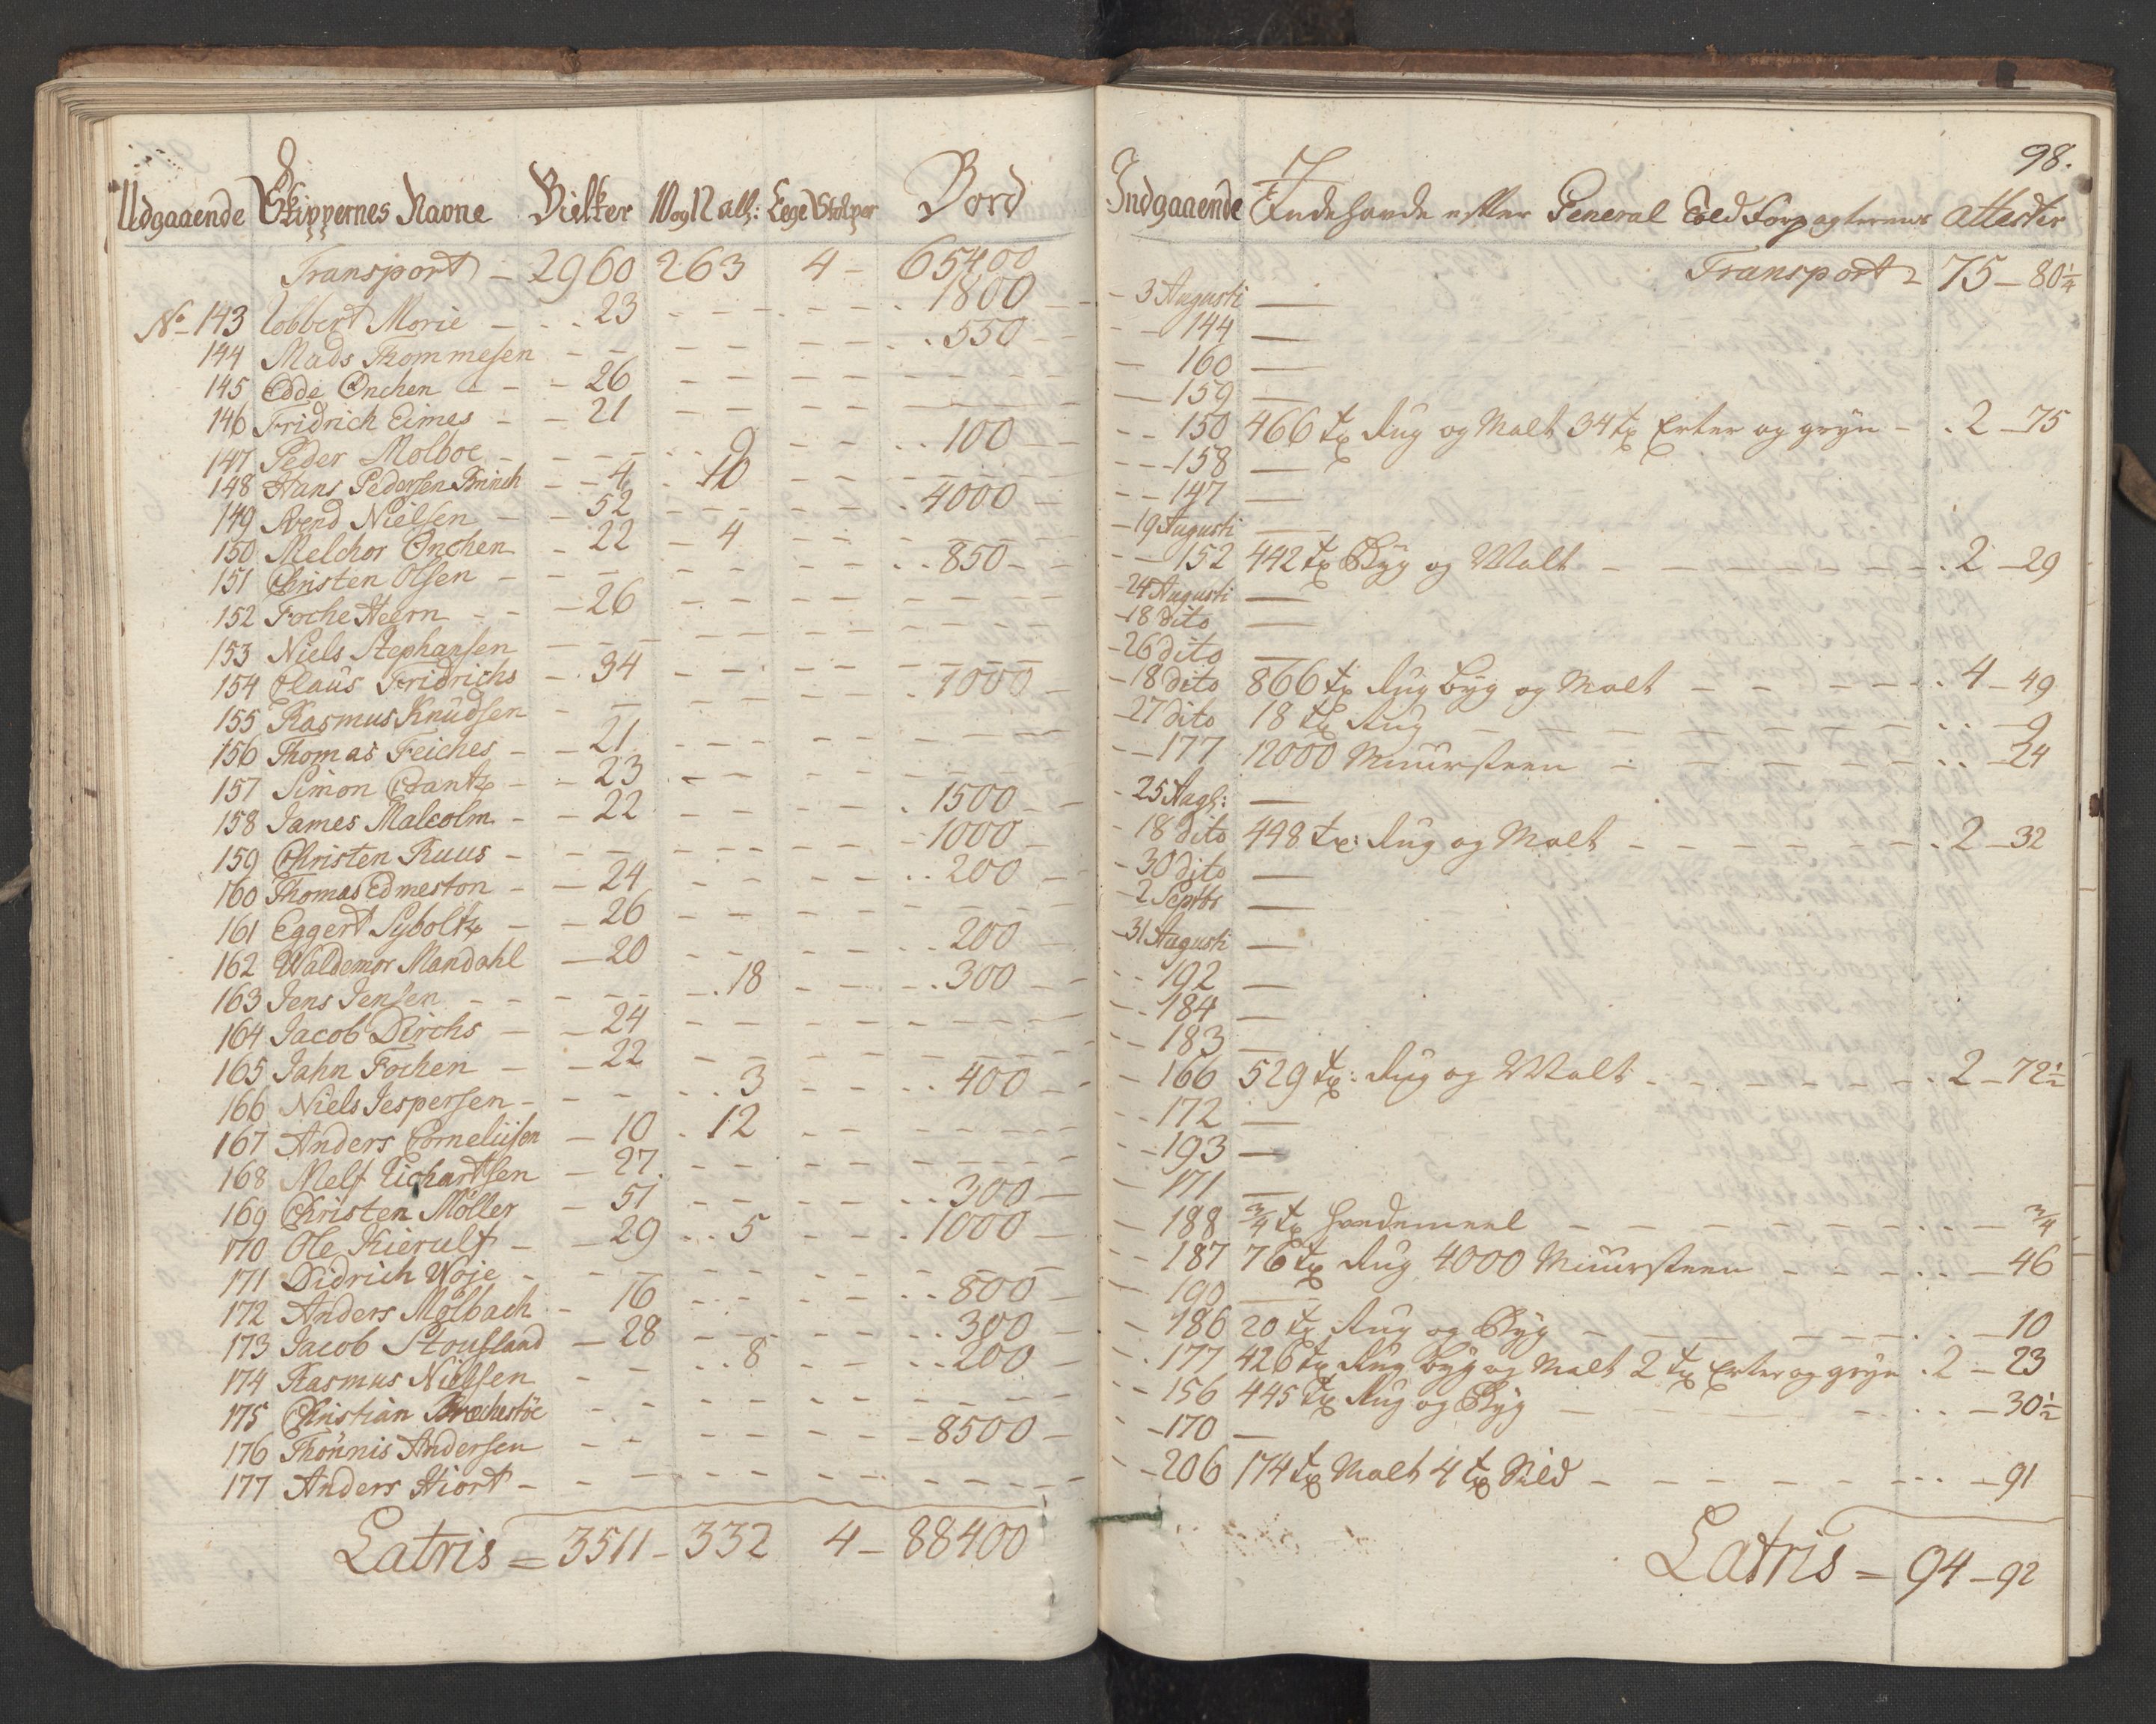 Udgaaende Skippernes Navne Bielker 10 og 12 all: Eege Stolper Bord
Transport - 2960 263 4 - 65400
No 143 Robbert Morie - 23 - 1800
144 Mads Thommesen - 550
145 Edde Onchen - 26
146 Fridrich Eimes - 21
147 Peder Molboe - 9 - 100
148 Hans Pedersen Brinch - 4 - 10
149 Svend Nielsen - 52 - 4000
150 Melchor Onchen - 22 - 4
151 Christen Olsen - 850
152 Foche Heern - 26
153 Niels Stephansen
154 Claus Fridrichs - 34 - 1000
155 Rasmus Knudsen
156 Thomas Feiches - 21
157 Simon Crantz - 23
158 James Malcolm - 22 - 1500
159 Christen Ruus - 1000
160 Thomas Edmeston - 24 - 200
161 Eggert Syboltz - 26
162 Waldemor Mandahl - 20 - 200
163 Jens Jensen - 18 - 300
164 Jacob Dirchs - 24
165 Jahn Fochen - 22
166 Niels Jespersen - 3 - 400
167 Anders Corneliisen - 10 - 12
168 Melf Richartsen - 27
169 Christen Möller - 51 - 300
170 Ole Kierulf - 29 - 5 - 1000
171 Didrich Woje
172 Anders Mølbach - 16 - 800
173 Jacob Stousland - 28 - 300
174 Rasmus Nielsen - 8 - 200
175 Christian
176 Thönnis Andersen - 8500
177 Anders Hiort -
Latris = 3511 - 332 4 - 88400
98.
Indgaaende Indehavde efter General Told Forpagternes attester
Transport - 75 - 80 1/4
- 3 Augusti —
- 144 —
- 160 —
- 159 —
- 150 466 tr Rug og Malt 34 tr Erter og gryn - 2 - 75
- 158 —
- 147 —
- 19 Augusti —
- 152 442 tr Byg og Malt - 2 - 29
- 24 Augusti —
- 18 dito —
- 26 dito —
- 18 dito 866 tr Rug byg og Malt - 4 - 49
- 27 dito 18 tr Rug - 9
- 177 12000 Muursteen - 24
- 25 Augs: —
- 18 dito 448 tr: Rug og Malt - 2 - 32
- 30 dito —
- 2 Septbr —
- 31 Augusti —
- 192 —
- 184 —
- 183 —
- 166 529 tr: Rug og Malt - 2 - 72 1/2
- 172 —
- 193 —
- 171 —
- 188 3/4 tr - 3/4
- 187 76 tr Rug 4000 Muursteen - 46
- 190 —
- 186 20 tr Rug og Byg - 10
- 177 426 tr Rug byg og Malt 2 tr Erter og gryn - 2 - 23
- 156 445 tr Rug og Byg - 30 1/2
- 170 —
- 206 174 tr Malt 4 tr Sild - 91
Latris = 94 - 92